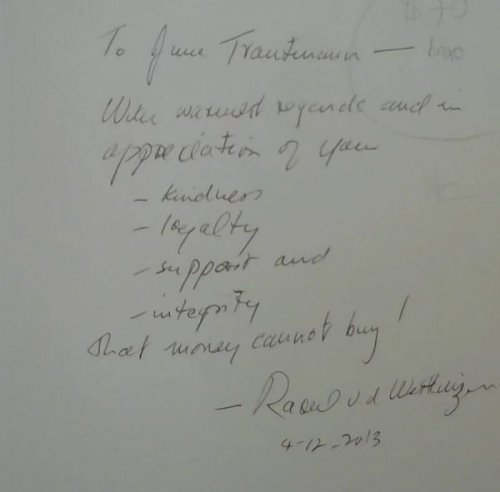 To June Trautmann —
With warmest regards and in
appreciation of your
- kindness
- loyalty
- support and
- integrity
that money cannot buy!
- Raoul v d Westhuizen
4-12-2013
$70